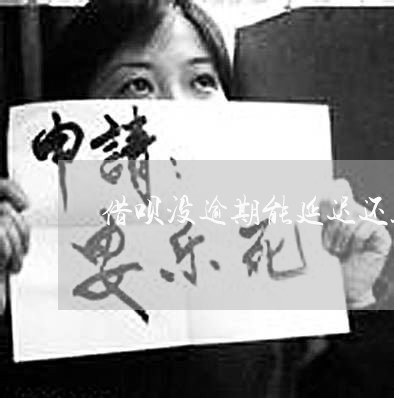 申請：
借呗没逾期能延迟还
安乐死